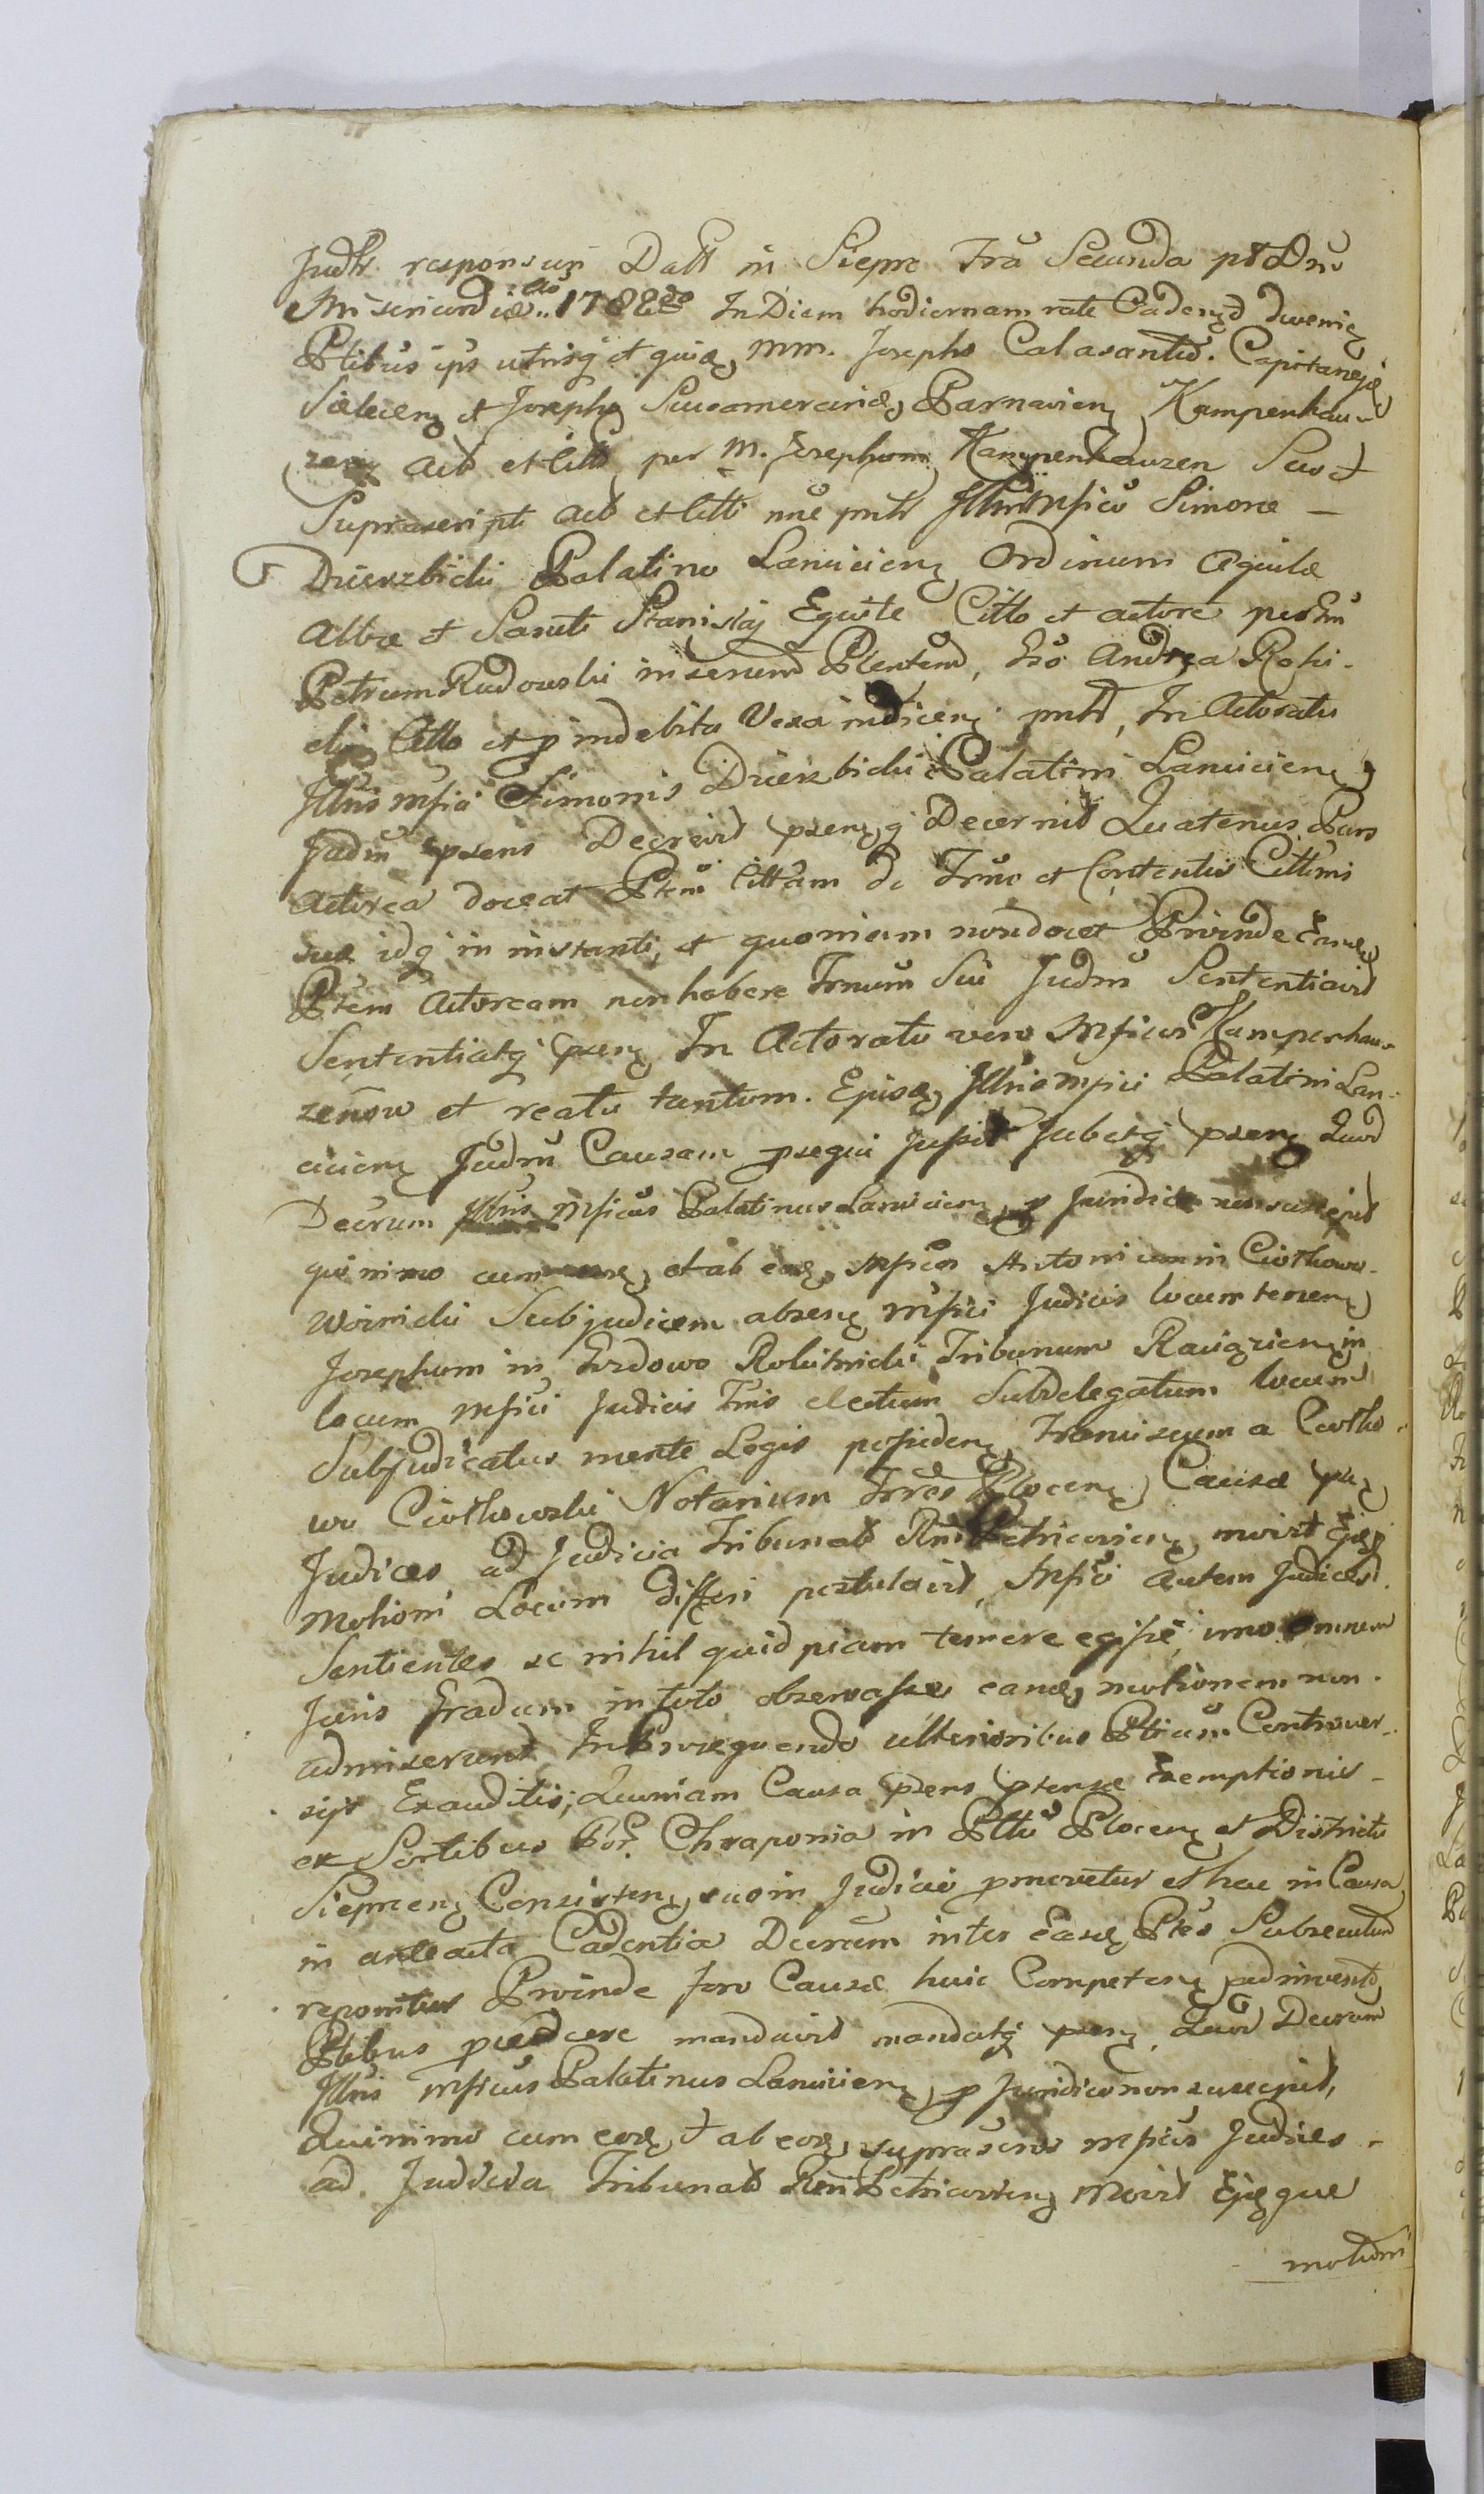 Judtr responsum Datt in Sieprc Fra Secunda pt Dnc
Misericordiæ 1788vo In Diem hodiernam rate Cadenz dweniz
Ptibus ips utrisq et quisz mm. Josepho Calasantio Capitaneję
Sielecenz et Josepho Succamerariæ Parnavienz Kampenhau-
zenz Act et Citt per M. Josephum Kampenhauzen Suo et
Suprascript Act et Citti nne pntr Illmo Mfico Simone —
Dzierzbicki Palatino Lancicienz Ordinum Aquilæ
Albæ et Sancti Stanislaj Equite Citto et actore per Gnm
Petrum Rudowski inserund Plentem, Gso Andrea Roki-
cki Citto et p indebita Vexa indicenz pntr, In Actoratu
Illris Mfici Simonis Dzierzbicki Palatini Lancicienz
Judm prsens Decrevit prsenzq Decernit Quatenus Pars
Actorea doceat Ptem Cittam de Trno et Contentis Cittnis
suæ idq in instanti, et quoniam non docet Proinde Eandz
Ptem Actoream non habere Trnum Sui Judm Sententiavit
Sententiatq prsenz In Actoratu vero Mficor Kampenhau-
zenow et reatu tantum. Ejusdz Illris Mfici Palatini Lan-
cicienz Judm Causam prsequi Jussit Jubetq prsenz Quod
Decrum Illris Mficus Palatinus Lancicienz p Juridico non suscepit
quinimo cum eodz et ab eodz Mficos Antonium in Ciołkowo
Woinicki Subjudicem absenz Mfici Judicis locum tenenz
Josephum in Gozdowo Rokitnicki Tribunum Ravzienz in
locum Mfici Judicis Tris electum Subdelegatum locum
Subjudicatus mente Legis possidenz, Franciscum a Ciołko-
wo Ciołkowski Notarium Trrës Plocenz Causæ prsenz
Judices, ad Judicia Tribunats Rni Petricovienz movit Ejq
Motioni Locum differi postulavit, Mfici autem Judices
Sentientes se nihil quidpiam temere egisse, imo omnem
Juris Gradum in toto observasse eandz motionem non
admiserunt In Prosequendo ulterioribus Ptium Controver-
sijs Exauditis, Quoniam Causa prsens ptensæ Exemptionis
ex Sortibus Bor. Chraponia in Pttu Plocenz et Districtu
Sieprcenz Consistenz, suo in Judicio pmovetur et hac in Causa
in anteacta Cadentia Decretum inter Easdz Ptes Subsecutum
reponitur Proinde foro Causæ huic Competenz adinvento
Ptibus procedere mandavit mandatq prsenz. Quod Decrum
Illris Mficus Palatinus Lancicienz p Juridico non suscepit,
Quinimo cum eodz et ab eodz suprascros Mficos Judices
ad Judicia Tribunats Rni Petricovienz Movit Ejq que
motioni